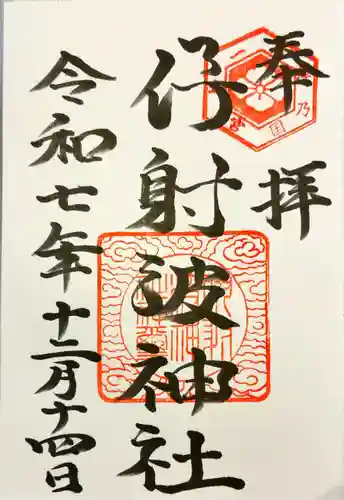 奉拝
伊射波神社
令和七年十二月十四日